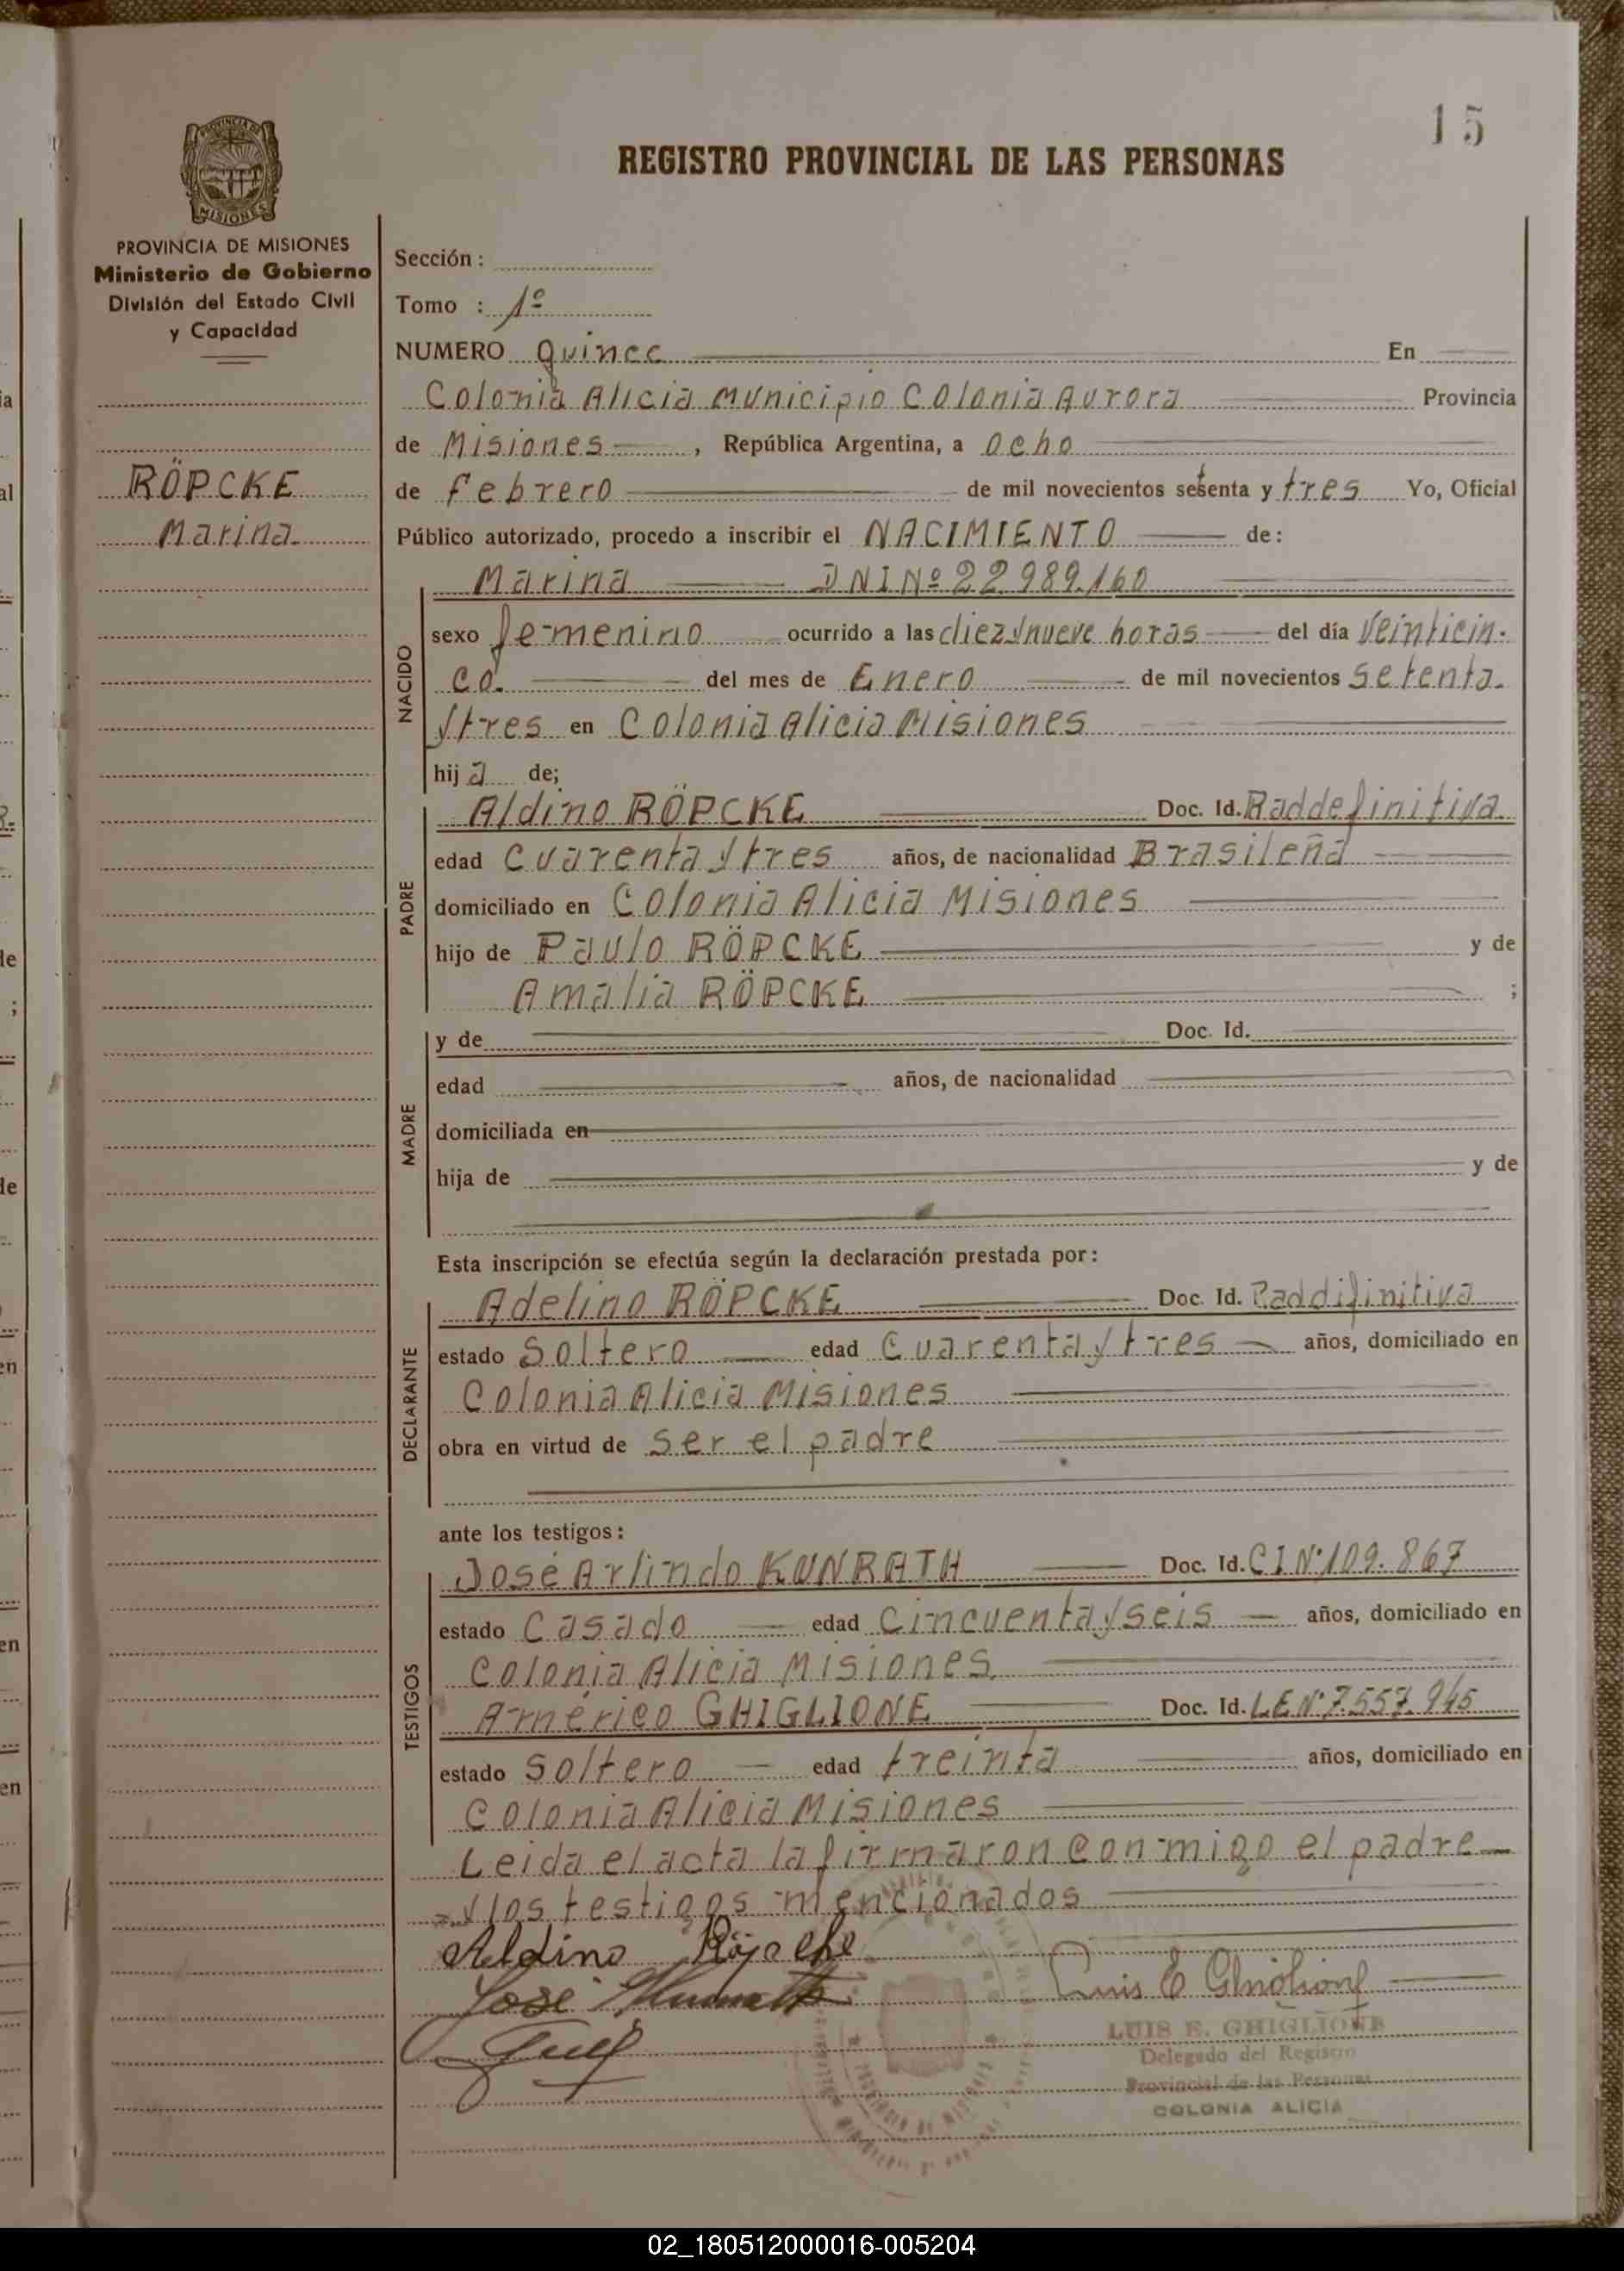 15
REGISTRO PROVINCIAL DE LAS PERSONAS
PROVINCIA DE MISIONES
Ministerio de Gobierno
División del Estado Civil
y Capacidad
RÖPCKE
Marina
Sección :
Tomo : 1º
NUMERO quince En
Colonia Alicia Municipio Colonia Aurora Provincia
de Misiones , República Argentina, a ocho
de febrero de mil novecientos setenta y tres Yo, Oficial
Público autorizado, procedo a inscribir el NACIMIENTO de:
NACIDO
Marina DNI Nº 22989.160
sexo femenino ocurrido a las diez y nueve horas del día veinticin-
co. del mes de Enero de mil novecientos setenta
y tres en Colonia Alicia Misiones
hija de;
PADRE
Aldino RÖPCKE Doc. Id. Raddefinitiva
edad cuarenta y tres años, de nacionalidad Brasileña
domiciliado en Colonia Alicia Misiones
hijo de Paulo RÖPCKE y de
Amalia RÖPCKE ;
MADRE
y de Doc. Id.
edad años, de nacionalidad
domiciliada en
hija de y de
Esta inscripción se efectúa según la declaración prestada por:
DECLARANTE
Adelino RÖPCKE Doc. Id. Raddifinitiva
estado Soltero edad Cuarenta y tres años, domiciliado en
Colonia Alicia Misiones
obra en virtud de ser el padre
ante los testigos:
TESTIGOS
José Arlindo KUNRATH Doc. Id. CI Nº 109.867
estado Casado edad Cincuenta y seis años, domiciliado en
Colonia Alicia Misiones
Américo GHIGLIONE Doc. Id. LE Nº 7.557.945
estado Soltero edad treinta años, domiciliado en
Colonia Alicia Misiones
Leida el acta la firmaron conmigo el padre
y los testigos mencionados
Aldino Röpcke
José
Luis E Ghiglione
LUIS E. GHIGLIONE
Delegado del Registro
Provincial de las Personas
COLONIA ALICIA
02_180512000016-005204